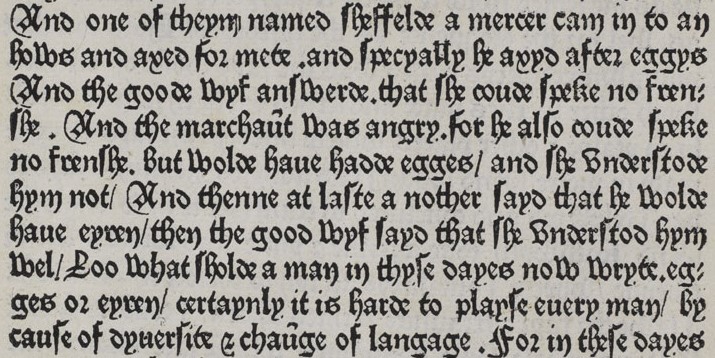 And one of theym named sheffelde a mercer cam in to an
hows and axed for mete .and specyally he axyd after eggys
And the goode wyf answerde.that she coude speke no fren⸗
she . And the marchaūt was angry.for he also coude speke
no frenshe. but wolde haue hadde egges/ and she vnderstode
hym not/ And thenne at laste a nother sayd that he wolde
haue eyren/then the good wyf sayd that she vnderstod hym
wel/Loo what sholde a man in thyse dayes now wryte.eg⸗
ges or eyren/ certaynly it is harde to playse euery man/ by
cause of dyuersite ⁊ chaūge of langage .For in these dayes